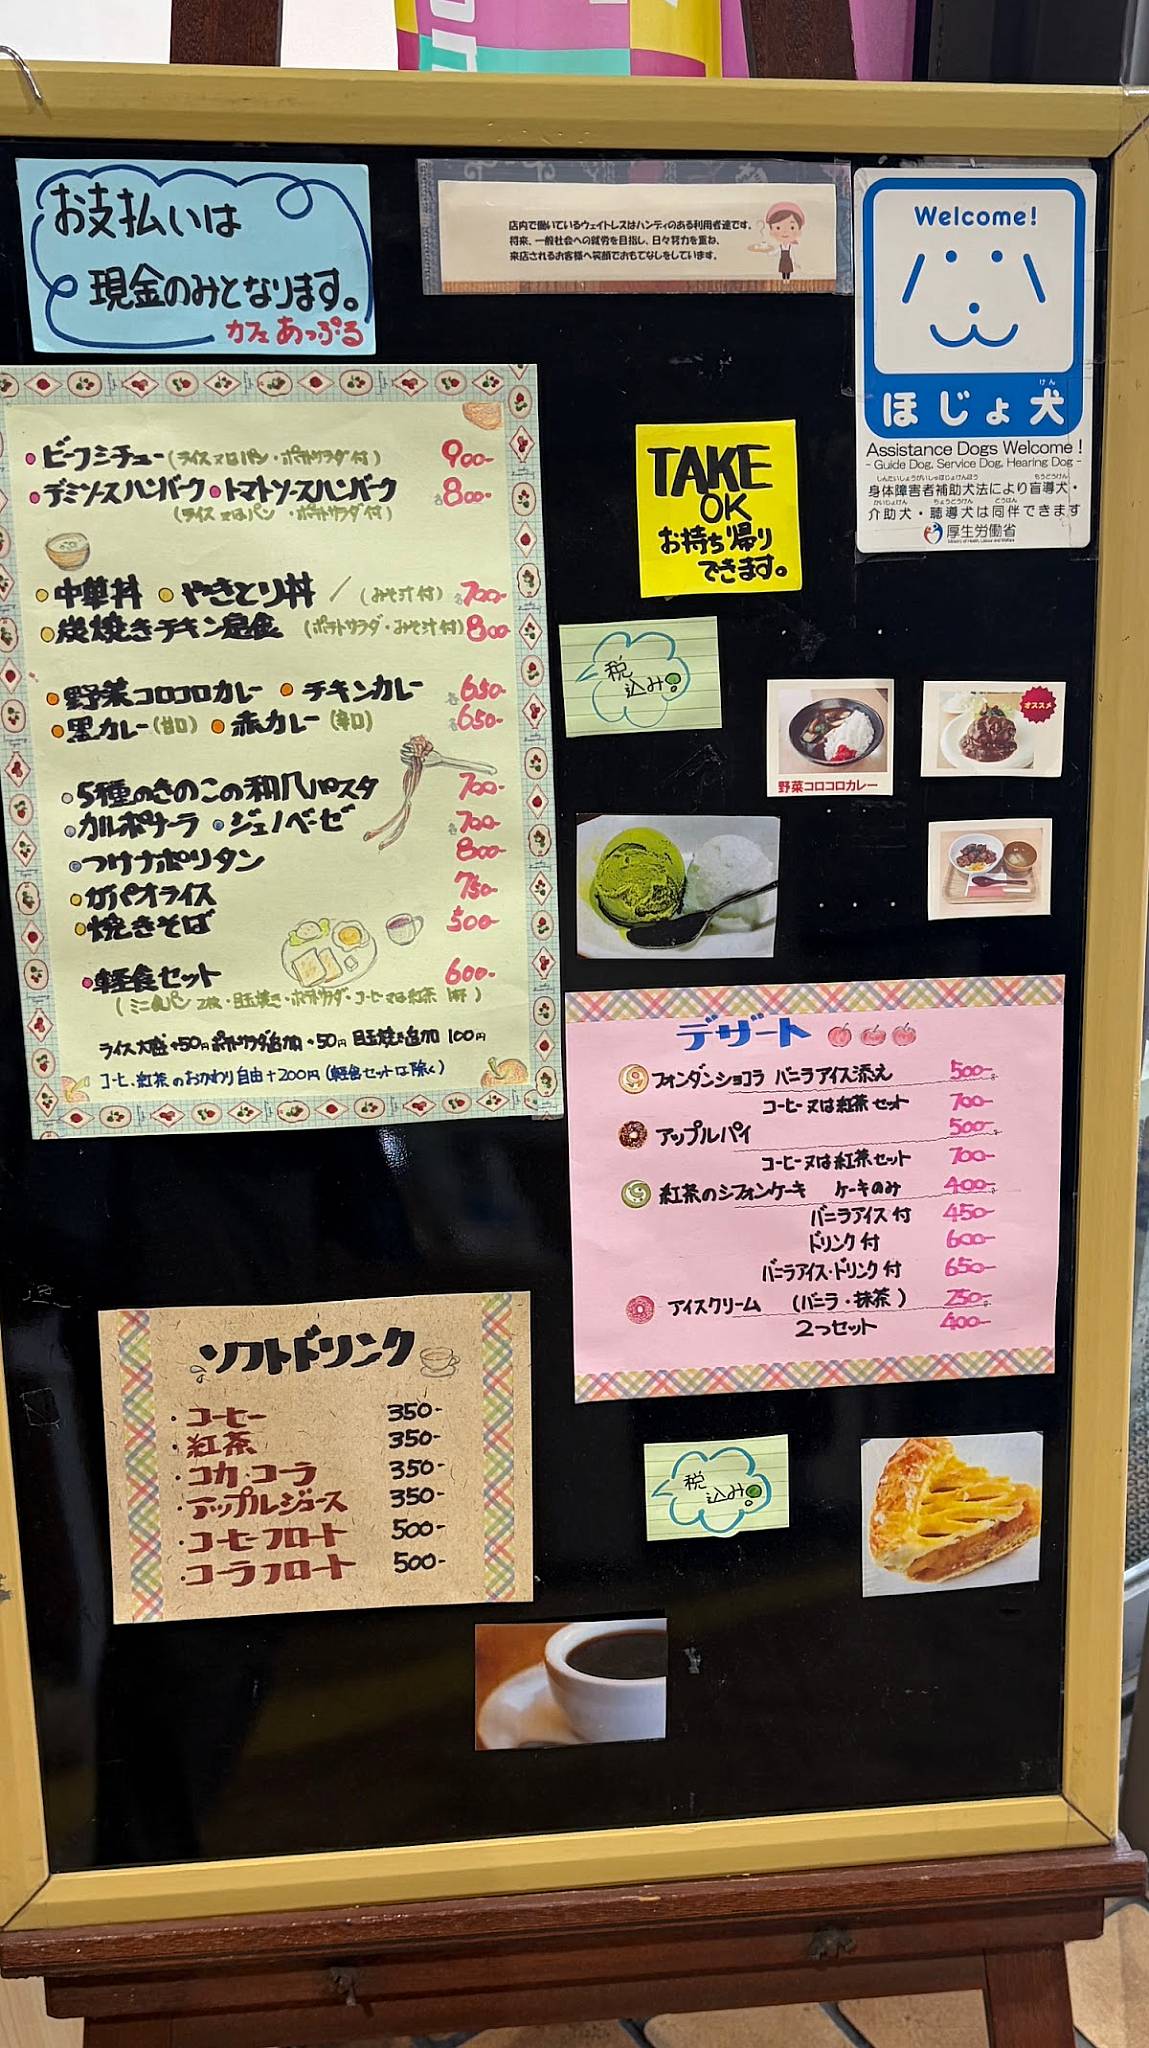 お支払いは
現金のみとなります。
カフェ あっぷる
店内で働いているウェイトレスはハンディのある利用者達です。
将来、一般社会への就労を目指し、日々努力を重ね、
来店されるお客様へ笑顔でおもてなしをしています。
Welcome!
ほじょ犬
けん
Assistance Dogs Welcome!
- Guide Dog, Service Dog, Hearing Dog -
しんたいしょうがいしゃほじょけんほう もうどうけん
身体障害者補助犬法により盲導犬・
かいじょけん ちょうどうけん どうはん
介助犬・聴導犬は同伴できます
厚生労働省
Ministry of Health, Labour and Welfare
ビーフシチュー(ライス又はパン・ポテトサラダ付) 900-
デミソースハンバーグ トマトソースハンバーグ 各800-
(ライス又はパン・ポテトサラダ付)
中華丼 やきとり丼 / (みそ汁付) 各700-
炭焼きチキン定食 (ポテトサラダ・みそ汁付) 800-
野菜コロコロカレー チキンカレー 各650-
黒カレー(甘口) 赤カレー(辛口) 各650-
5種のきのこの和風パスタ 700-
カルボナーラ ジェノベーゼ 各700-
つけナポリタン 800-
ガパオライス 750-
焼きそば 500-
軽食セット 600-
(ミニ食パン 2枚・目玉焼き・ポテトサラダ・コーヒー又は紅茶 付)
ライス大盛+50円 ポテトサラダ追加+50円 目玉焼き追加 100円
コーヒー、紅茶のおかわり自由+200円(軽食セットは除く)
TAKE
OK
お持ち帰り
できます。
税
込み
野菜コロコロカレー
オススメ
デザート
フォンダンショコラ バニラアイス添え 500-
コーヒー又は紅茶セット 700-
アップルパイ 500-
コーヒー又は紅茶セット 700-
紅茶のシフォンケーキ ケーキのみ 400-
バニラアイス付 450-
ドリンク付 600-
バニラアイス・ドリンク付 650-
アイスクリーム (バニラ・抹茶) 250-
2つセット 400-
ソフトドリンク
・コーヒー 350-
・紅茶 350-
・コカ・コーラ 350-
・アップルジュース 350-
・コーヒーフロート 500-
・コーラフロート 500-
税
込み